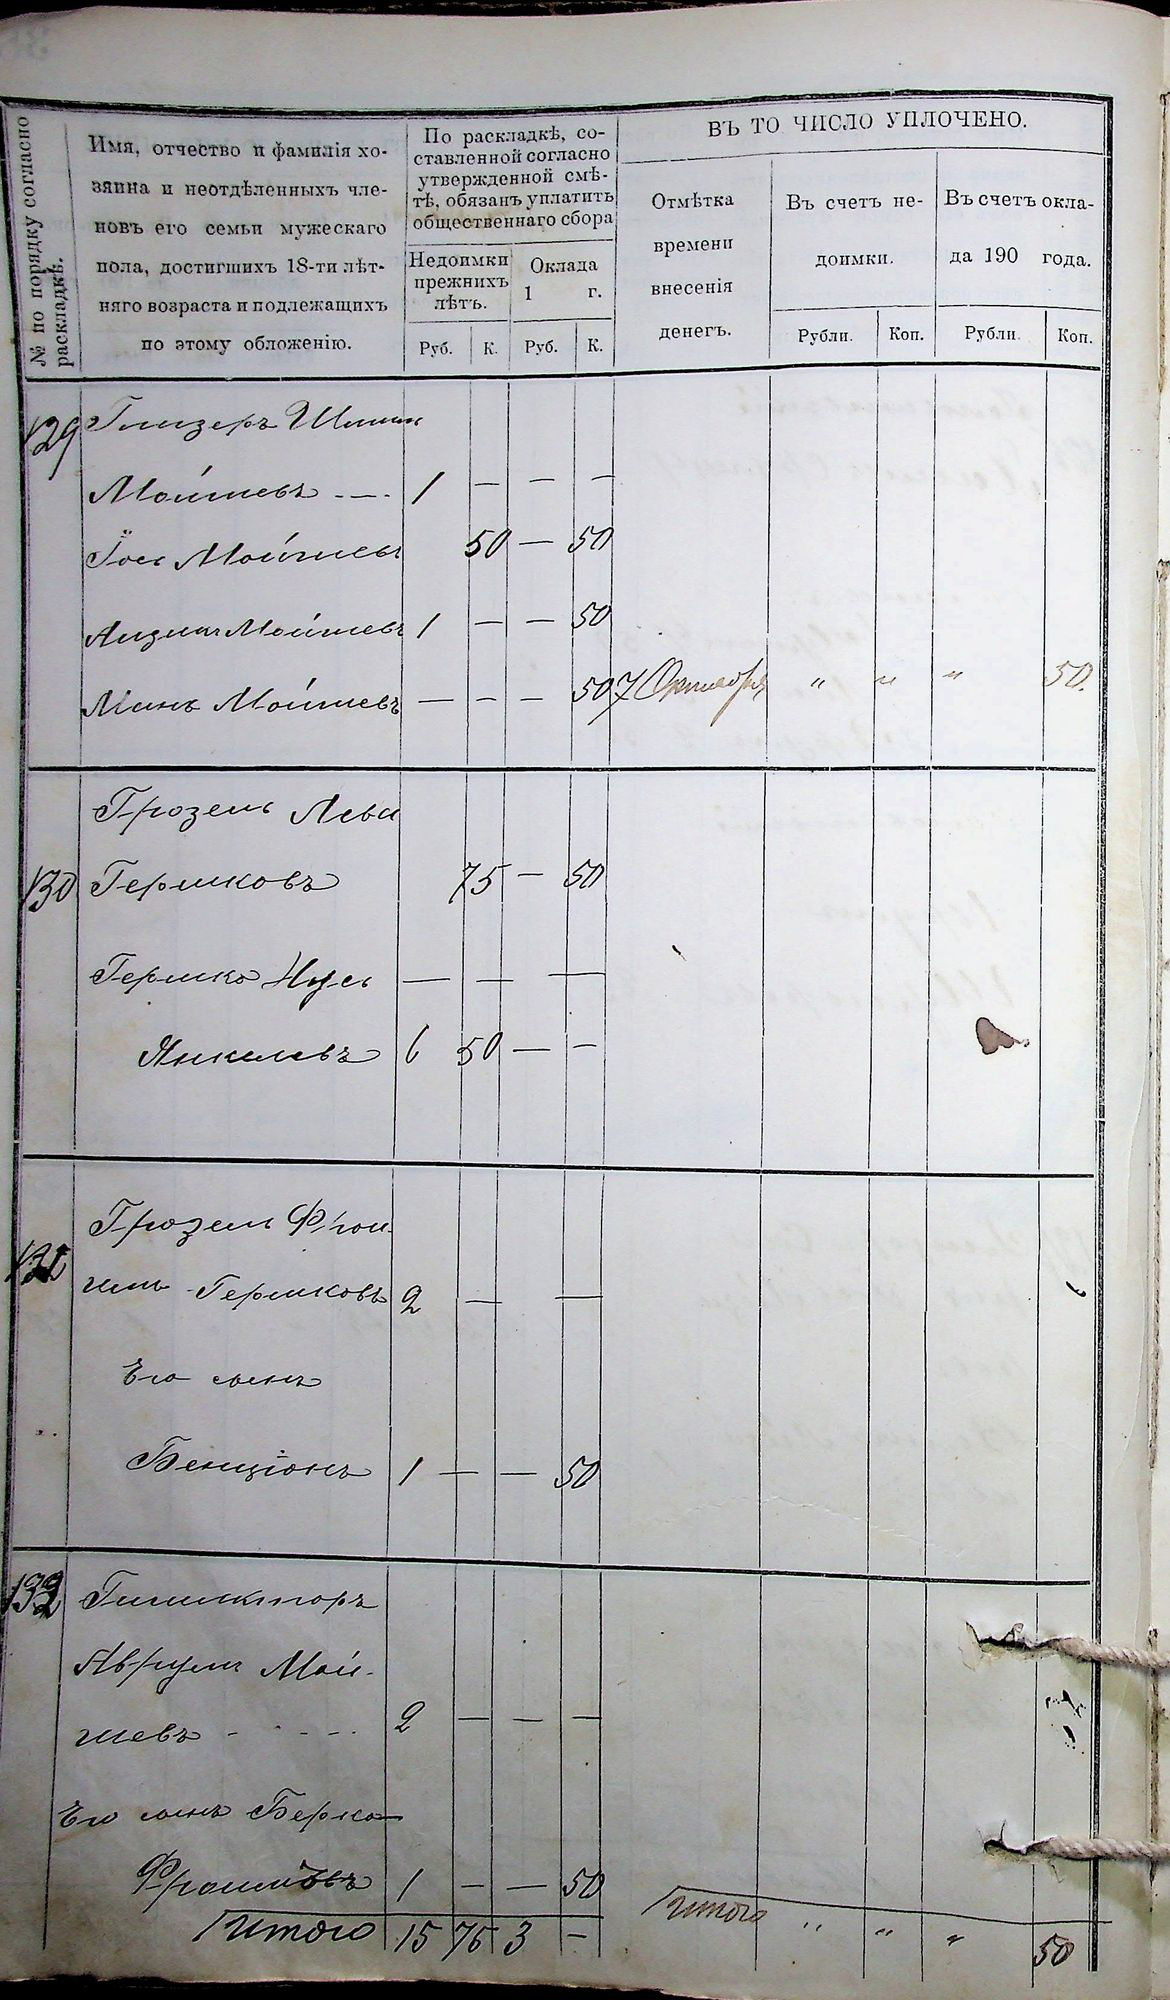 № по порядку согласно раскладкѣ.
Имя, отчество и фамилія хо-
зяина и неотдѣленныхъ чле-
новъ его семьи мужескаго
пола, достигшихъ 18-ти лѣт-
няго возраста и подлежащихъ
по этому обложенію.
По раскладкѣ, со-
ставленной согласно
утвержденной смѣ-
тѣ, обязанъ уплатить
общественнаго сбора
Недоимки
прежнихъ
лѣтъ.
Оклада
1 г.
Руб. К. Руб. К.
ВЪ ТО ЧИСЛО УПЛОЧЕНО.
Отмѣтка
времени
внесенія
денегъ.
Въ счетъ не-
доимки.
Рубли. Коп.
Въ счетъ окла-
да 190 года.
Рубли. Коп.
129 Глизеръ
Мойшевъ - - - 1 — — —
Іось Мойшевъ 50 — 50
Мойшевъ 1 — — 50
Мойшевъ — — — 50 7 Октября " " " 50.
Грозель Лейба
130 Гершковъ 75 — 50
Гершко Нусь — — —
Янкелевъ 6 50 — —
Грозель Фрои-
131 Гершковъ 2 — —
Его сынъ
Бенціонъ 1 — — 50
132
Аврумъ Мой-
шевъ - - - - 2 — — —
Его сынъ Берко
Фроимовъ 1 — — 50
Итого 15 75 3 — Итого " " " 50